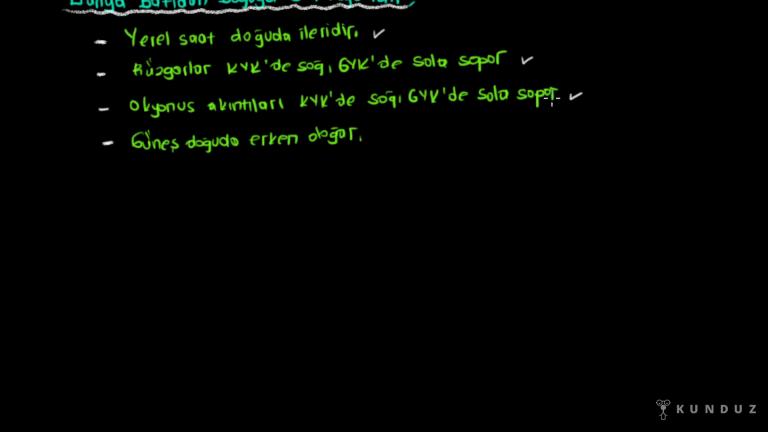 Dünya Batıdan Doğuya
- Yerel saat doğuda ileridir. ✓
- Rüzgarlar KYK'de sağı GYK'de sola sapar ✓
- Okyanus akıntıları KYK'de sağı GYK'de sola sapar ✓
- Güneş doğuda erken doğar.
KUNDUZ